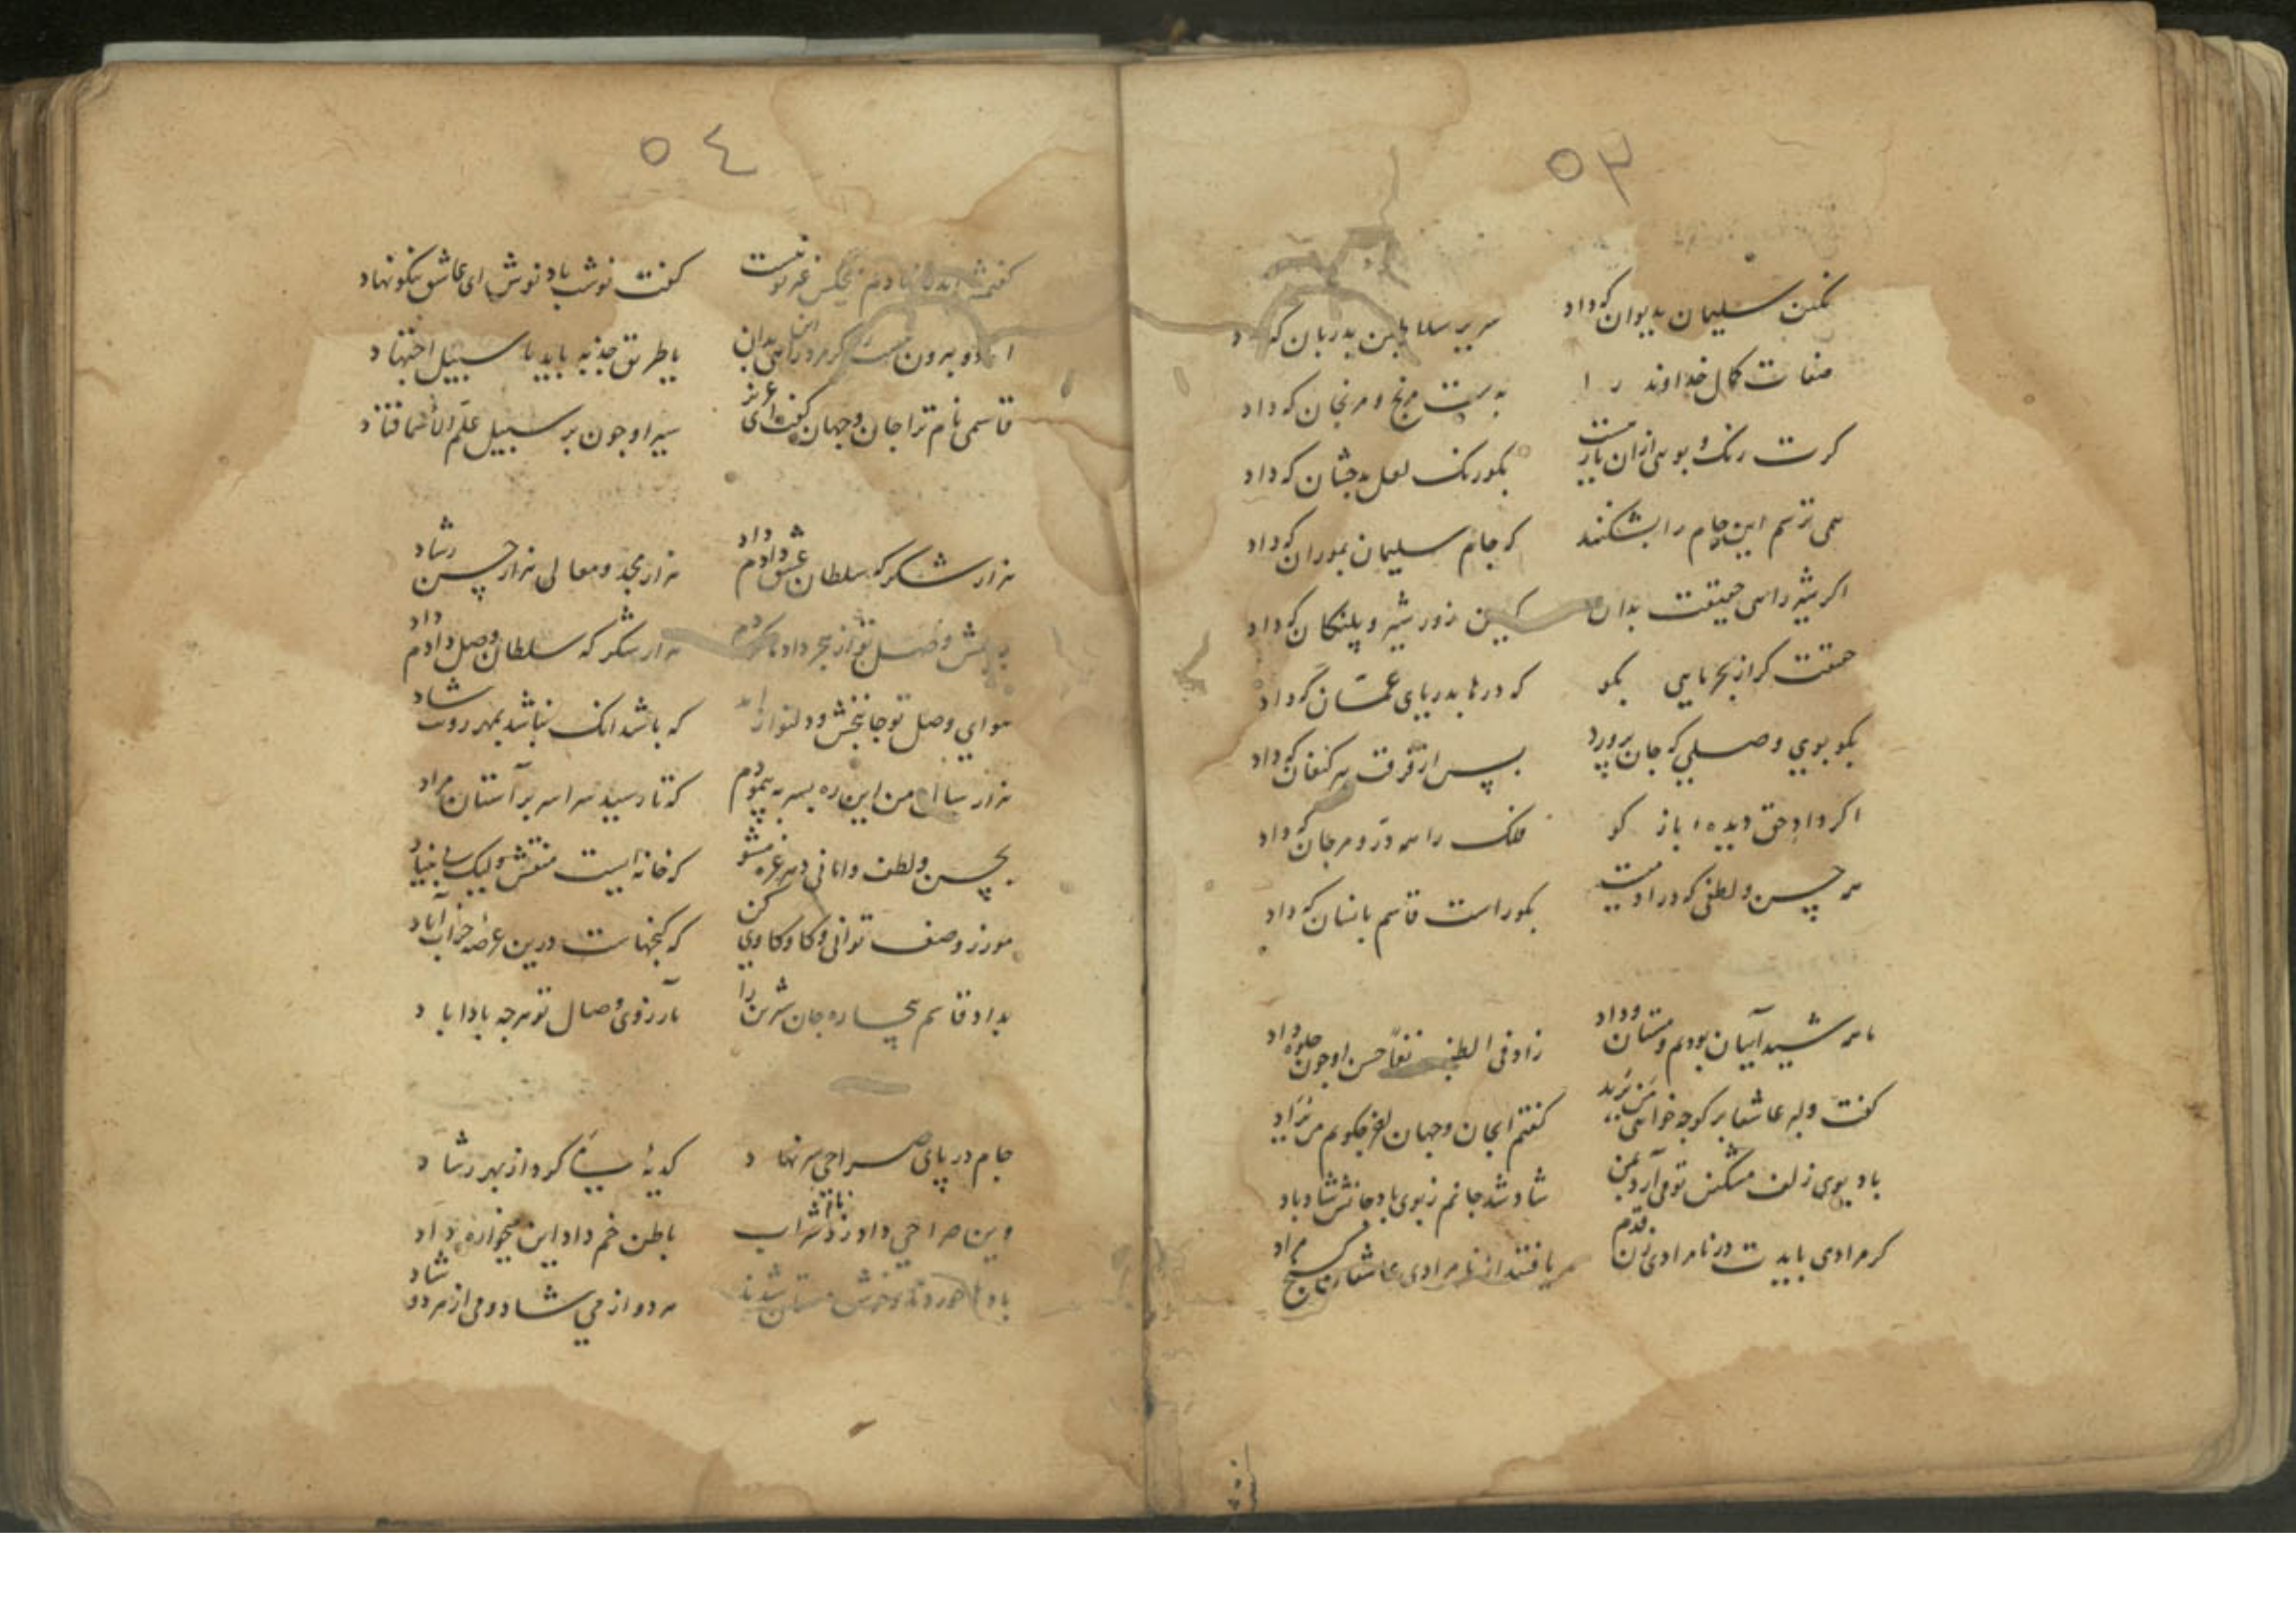 ٥٣
نگین سلیمان بدیوان که داد سریر سلاطین بدربان که داد
صفات کمال خداوند را بدست مرنج و مرنجان که داد
کرت رنک و بویی ازان یار هست بکو رنک لعل بدخشان که داد
همی ترسم این جام را بشکنند که جام سلیمان بموران که داد
اکر شیر راهی حقیقت بدان کین زور شیر و پلنکان که داد
حقیقت کر از بحر مایی بکو که درها بدریای عمّان که داد
بکو بوی وصلی که جان پرورد پس از فرقت پیر کنعان که داد
اکر داد حق دیده باز کو فلک را همه درّ و مرجان که داد
هر حسن و لطفی که در آدمیست بکو راست قاسم بانسان که داد
ما همه شیدائیان بودیم و مستان وداد زاد فی الطنبور نغما حسن او چون جلوه داد
کفت دلبر عاشقا بر کو چه خواهی من یزید کفتم ای جان و جهان لعز چکویم من یزاد
باد بوی زلف مشکین تو می آرد بمن شاد شد جانم ز بوی باد جانش شاد باد
کر مرادی بایدت در نامرادی زن قدم یافتند از نامرادی عاشقان کنج مراد
٥٤
کفتمش نیست کفت نوشت باد نوش ای عاشق نیکو نهاد
بدان یا طریق جذبه باید یا سبیل اجتهاد
قاسمی نام ترا جان و جهان کفت ای عزیز سیر او چون بر سبیل علّم الأسما فتاد
هزار شکر که سلطان عشق دادم داد هزار مجد و معالی هزار حسن رشاد
وصل تو از هجر داد هزار شکر که سلطان وصل دادم داد
هوای وصل تو جانبخش و دلنواز که باشد انک نباشد بمهر رویت شاد
هزار سال من این ره بسر به پیمودم که تا رسید سرا سر بر آستان مراد
بحسن و لطف و امانی دهر غره مشو که خانه ایست منقش ولیک بی بنیاد
مورز وصف توانی و کاوکاوی کن که کنجهاست درین عرصه خراب آباد
بداد قاسم بیچاره جان شیرین را بآرزوی وصال تو هرچه بادا باد
جام در پای صراحی سر نهاد کدیه کرد از بهر رشاد
وین صراحی داد نابش شراب باطن خم داد این میخواره داد
باده مستان شدند هر دو از می شاد و می از هر دو شاد